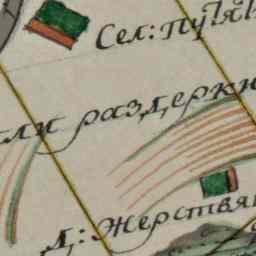 Сел: Путя
ли раздерки
Д: Жерствя